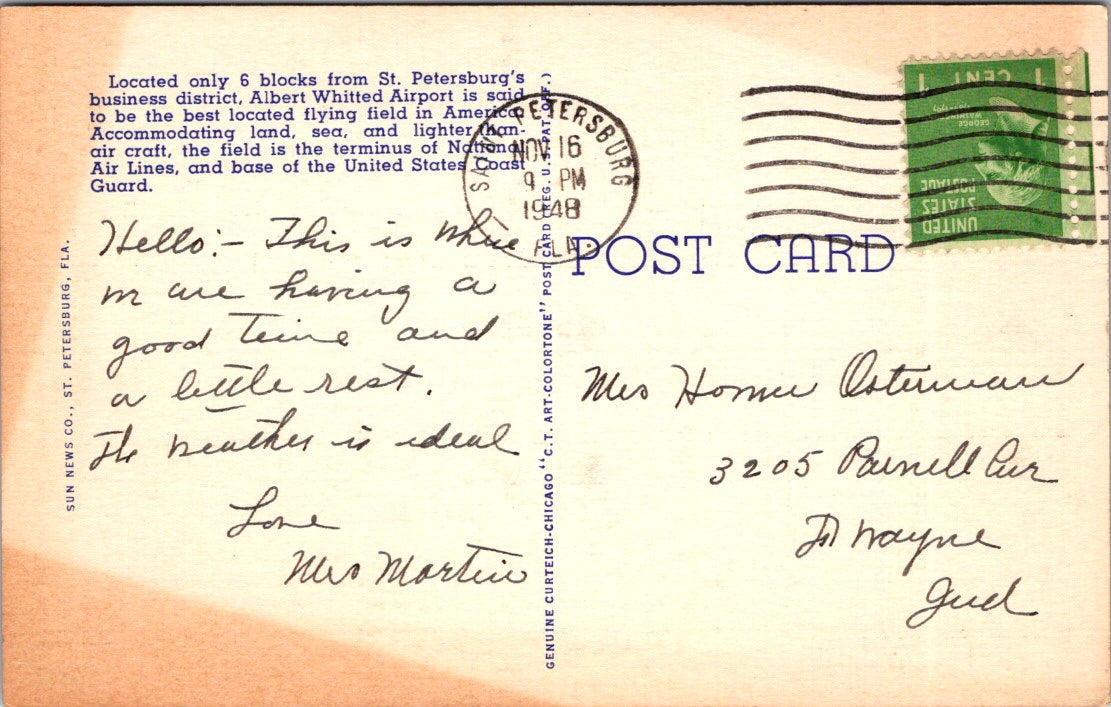 Located only 6 blocks from St. Petersburg's
business district, Albert Whitted Airport is said
to be the best located flying field in America.
Accommodating land, sea, and lighter-than-
air craft, the field is the terminus of National
Air Lines, and base of the United States Coast
Guard.
Hello:- This is where
we are having a
good time and
a little rest.
The weather is ideal
Love
Mrs Martin
SUN NEWS CO., ST. PETERSBURG, FLA.
GENUINE CURTEICH-CHICAGO "C.T. ART-COLORTONE" POST CARD (REG. U.S. PAT. OFF.)
SAINT PETERSBURG
NOV 16
9 PM
1948
FLA.
POST CARD
1 CENT 1
GEORGE
WASHINGTON
UNITED
STATES
POSTAGE
Mrs Homer Osterman
3205 Parnell Ave
Ft Wayne
Ind